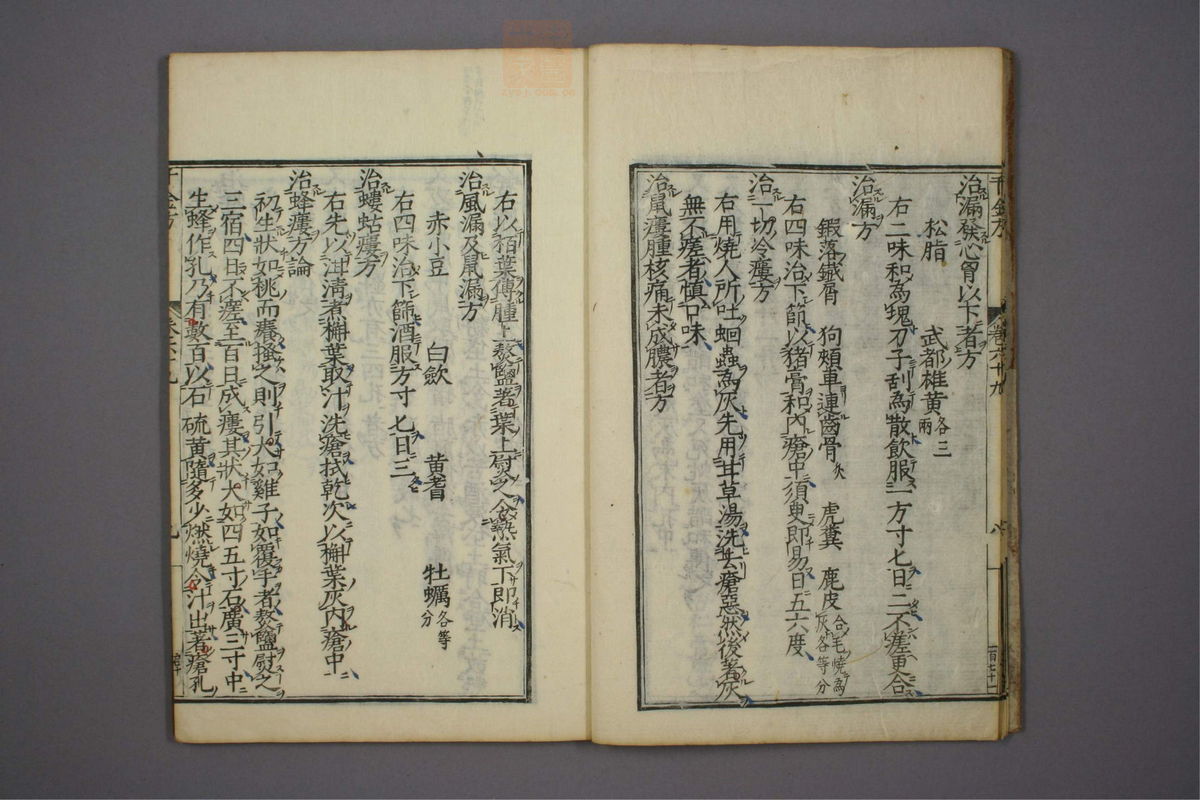 千金方 卷六十九 八
治漏發心胷以下者方
松脂 武都雄黃各三兩
右二味和為塊刀子刮為散飲服一方寸匕日二不瘥更合
治漏方
鍛落鐵屑 狗頰車連齒骨灸 虎糞 鹿皮合毛燒為灰各等分
右四味治下篩以猪膏和內瘡中須臾即易日五六度
治一切冷瘻方
右用燒人所吐蛔蟲為灰先用甘草湯洗去瘡惡然後著灰
無不瘥者慎口味
治鼠瘻腫核痛未成膿者方
右以栢葉傅腫上熬鹽著葉上熨之令熱氣下即消
治風漏及鼠漏方
赤小豆 白歛 黄耆 牡蠣各等分
右四味治下篩酒服方寸匕日三
治螻蛄瘻方
右先以泔清煮槲葉取汁洗瘡拭乾次以槲葉灰內瘡中
治蜂瘻方論
初生狀如桃而癢搔之則引大如雞子如覆手者熬鹽熨之
三宿四日不瘥至百日成瘻其狀大如四五寸石廣三寸中
生蜂作孔乃有數百以石硫黄隨多少燃燒令汁出著瘡孔